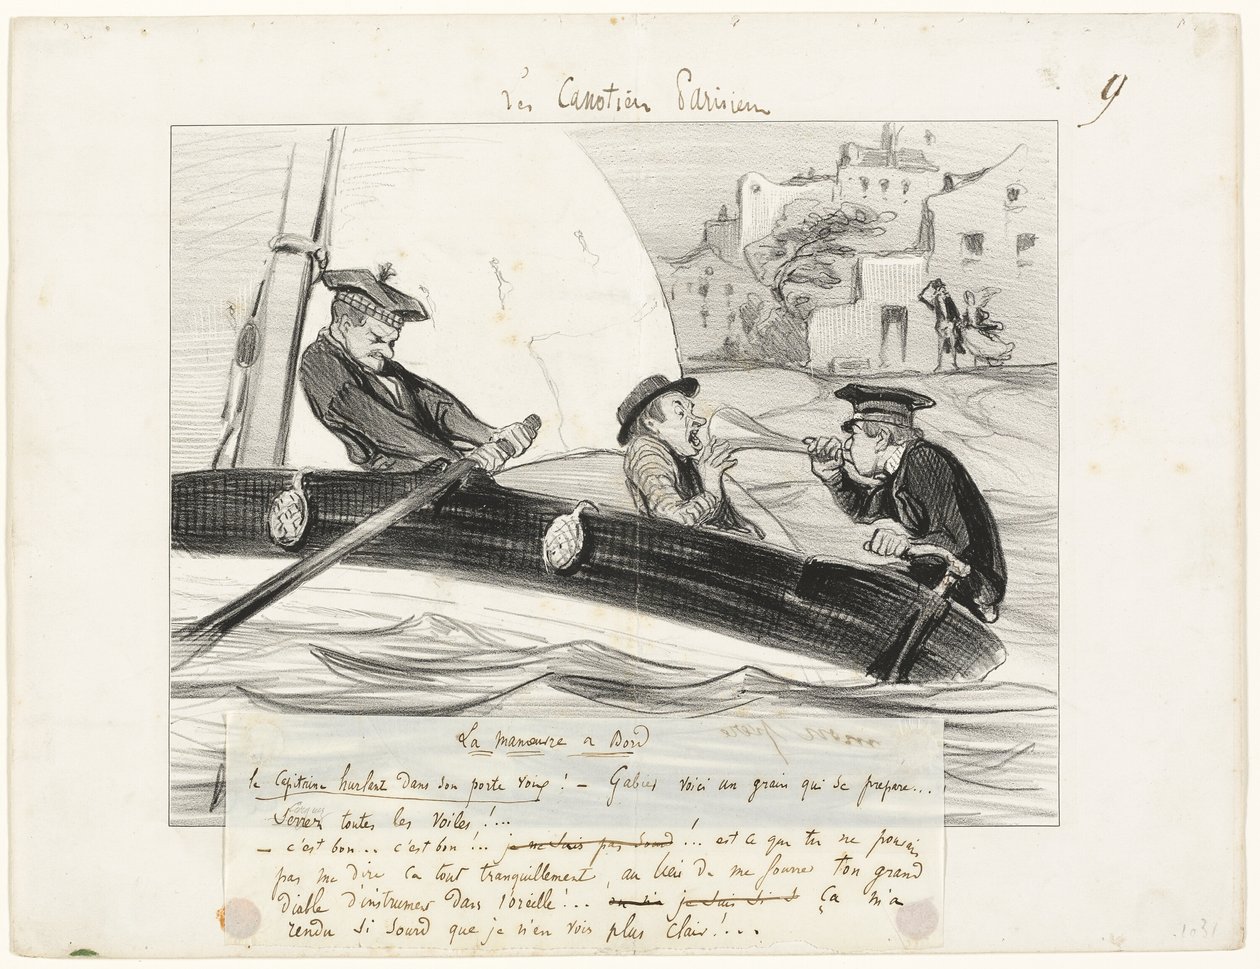 Les Canotiers Parisiens
9
La manœuvre a Bord
le Capitaine hurlant dans son porte voix ! — Gabier voici un grain qui se prepare...
Serrez toutes les voiles !...
— c'est bon... c'est bon !... je ne suis pas sourd ! ... est ce que tu ne pouvais
pas me dire ca tout tranquillement, au lieu de me fourrer ton grand
diable d'instrument dans l'oreille !... je suis si s Ça m'a
rendu si sourd que je n'en vois plus clair !...